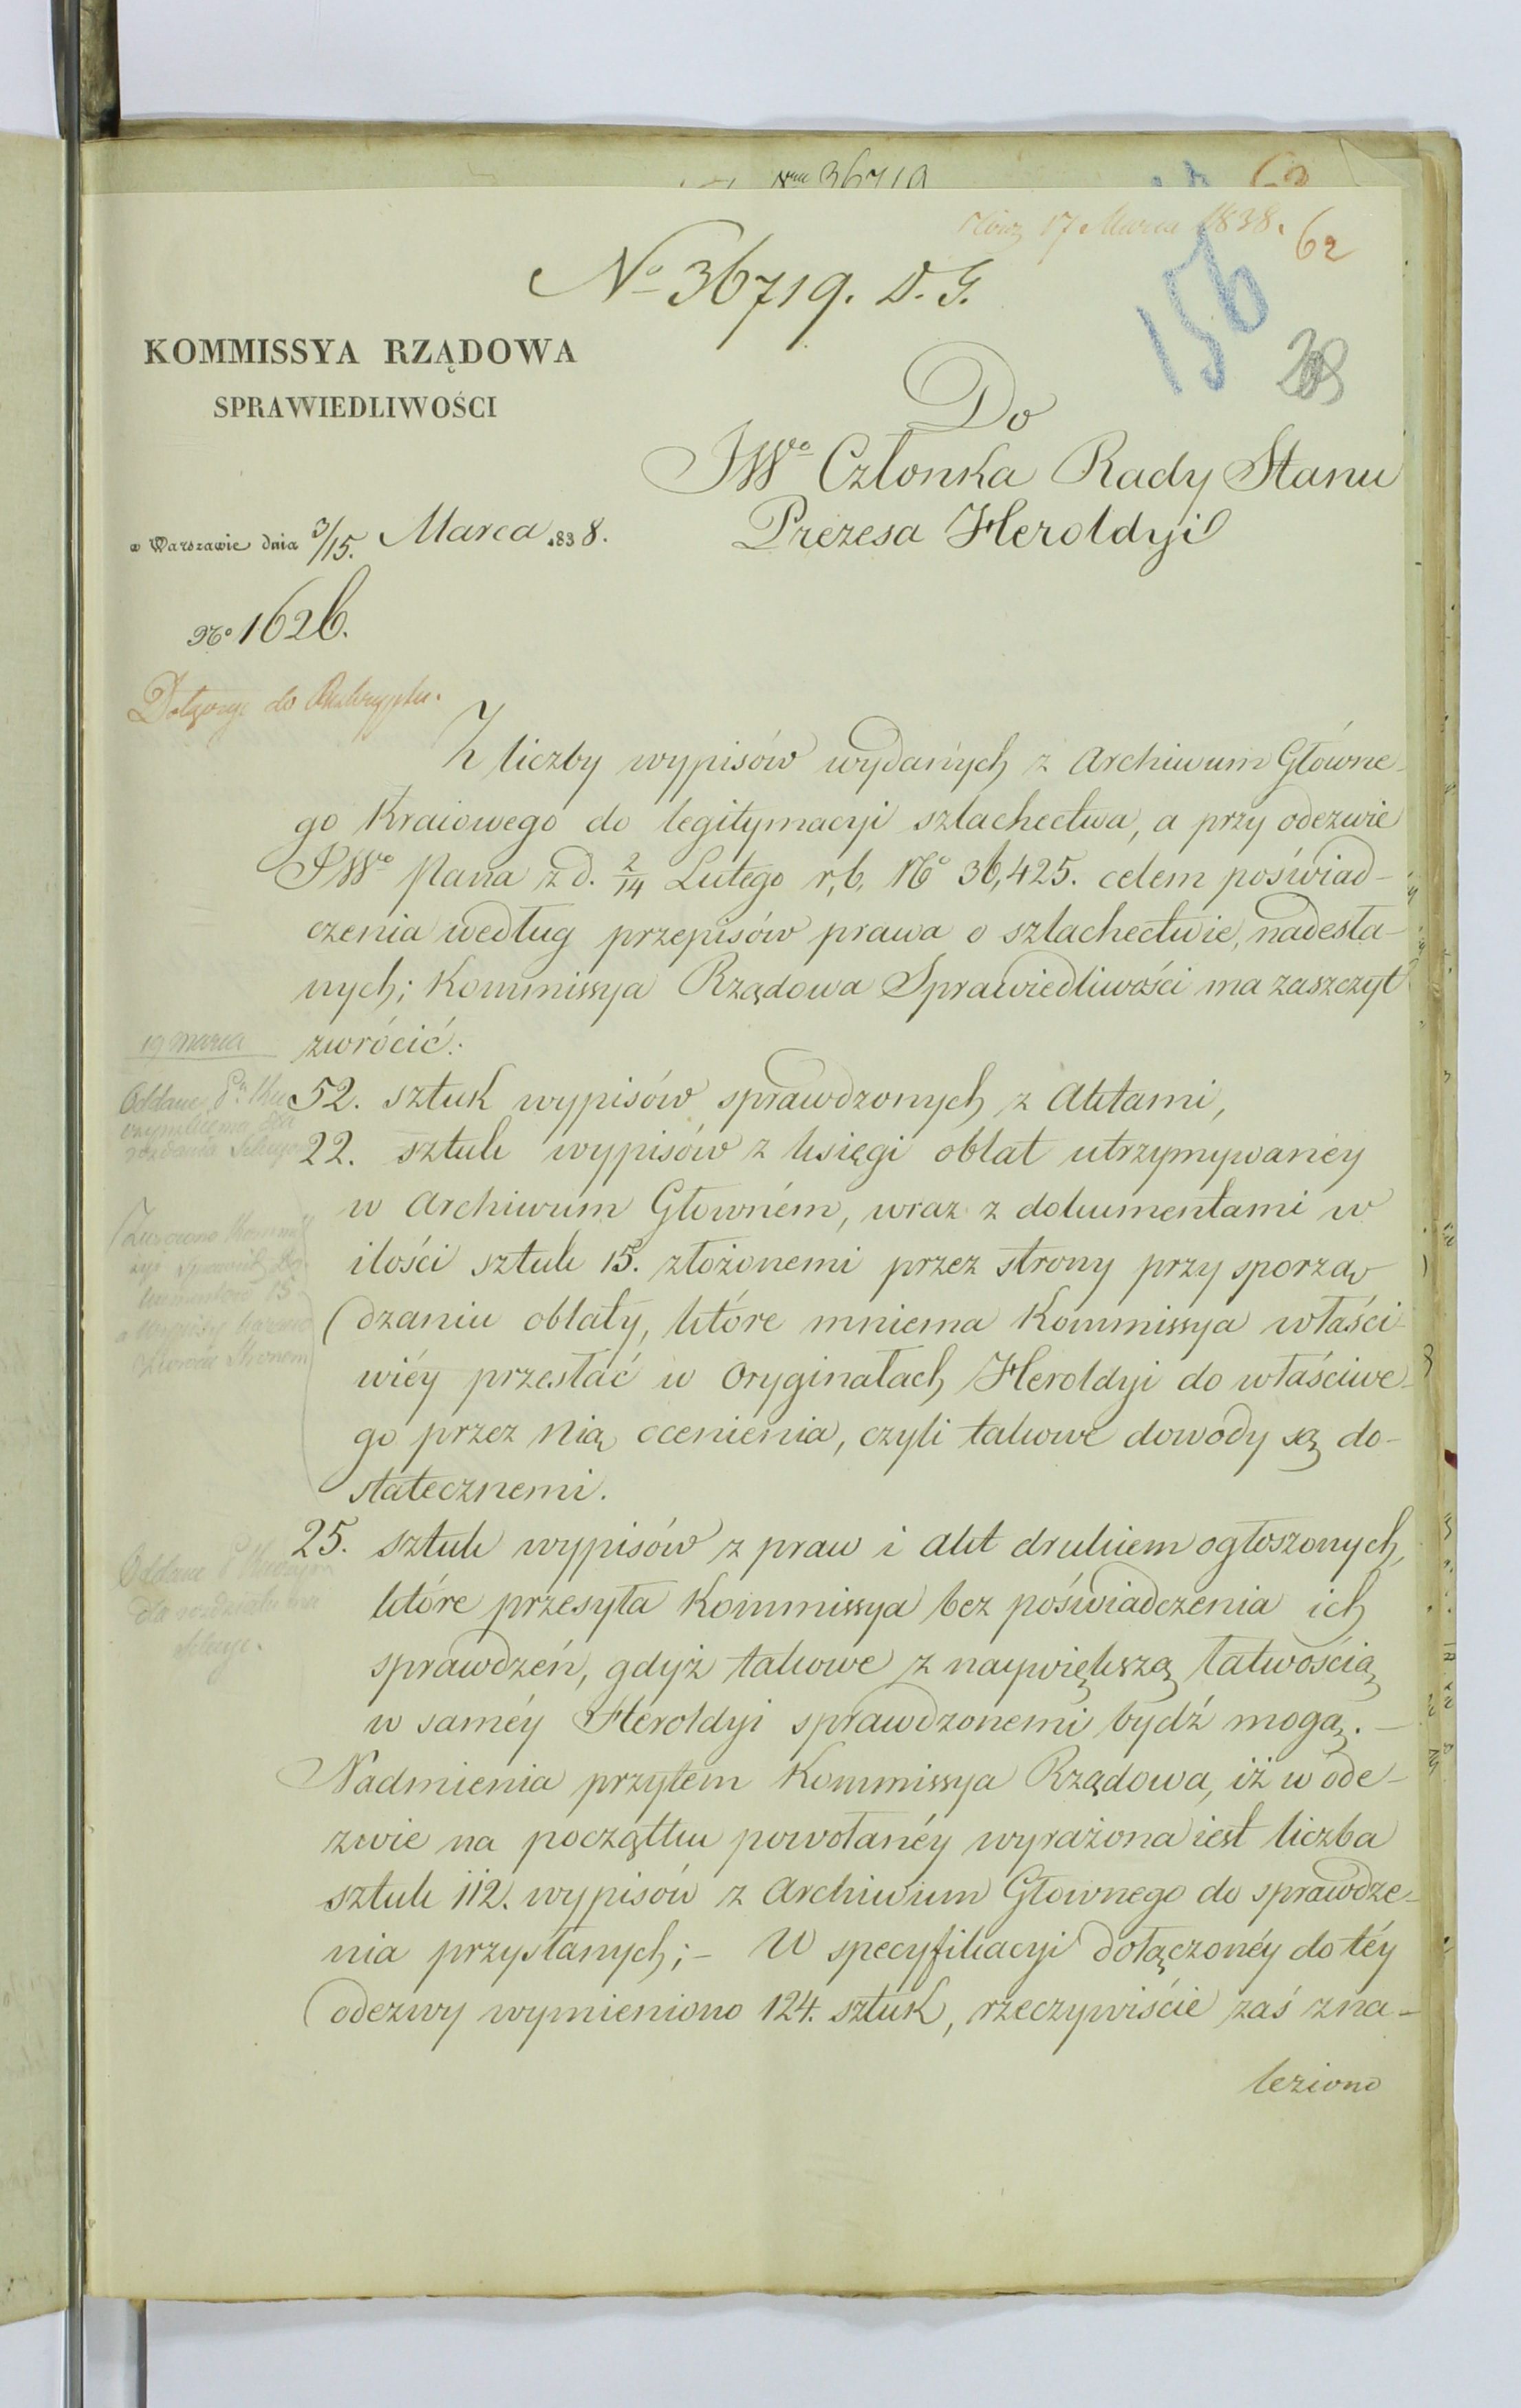 17 Marca 1838.
62
No 36719. D. G.
156
KOMMISSYA RZĄDOWA
SPRAWIEDLIWOŚCI
Do
JWo Członka Rady Stanu
Prezesa Heroldyi
w Warszawie dnia 3/15. Marca 1838.
No 1626.
do
Z liczby wypisów wydanych z Archiwum Główne-
go Kraiowego do legitymacyi szlachectwa, a przy odezwie
JWo Pana z d. 2/14 Lutego r, b, No 36,425. celem poświad-
czenia według przepisów prawa o szlachectwie, nadesła-
nych; Kommissya Rządowa Sprawiedliwości ma zaszczyt
zwrócić:
52. sztuk wypisów sprawdzonych z Aktami,
22. sztuk wypisów z księgi oblat utrzymywanéy
w Archiwum Głowném, wraz z dokumentami w
ilości sztuk 15. złożonemi przez strony przy sporzą-
dzaniu oblaty, które mniema Kommissya właści-
wiéy przesłać w Oryginałach Heroldyi do właściwe-
go przez Nią ocenienia, czyli takowe dowody są do-
statecznemi.
25. sztuk wypisów z praw i akt drukiem ogłoszonych,
które przesyła Kommissya bez poświadczenia ich
sprawdzeń, gdyż takowe z naywiększą łatwością
w saméy Heroldyi sprawdzonemi bydź mogą. –
Nadmienia przytem Kommissya Rządowa, iż w ode-
zwie na początku powołanéy wyrażona iest liczba
sztuk 112. wypisów z Archiwum Głownego do sprawdze-
nia przysłanych; – W specyfikacyi dołączonéy do téy
odezwy wymieniono 124. sztuk, rzeczywiście zaś zna-
leziono
19 marca
Oddane
15
Stronom
Oddane